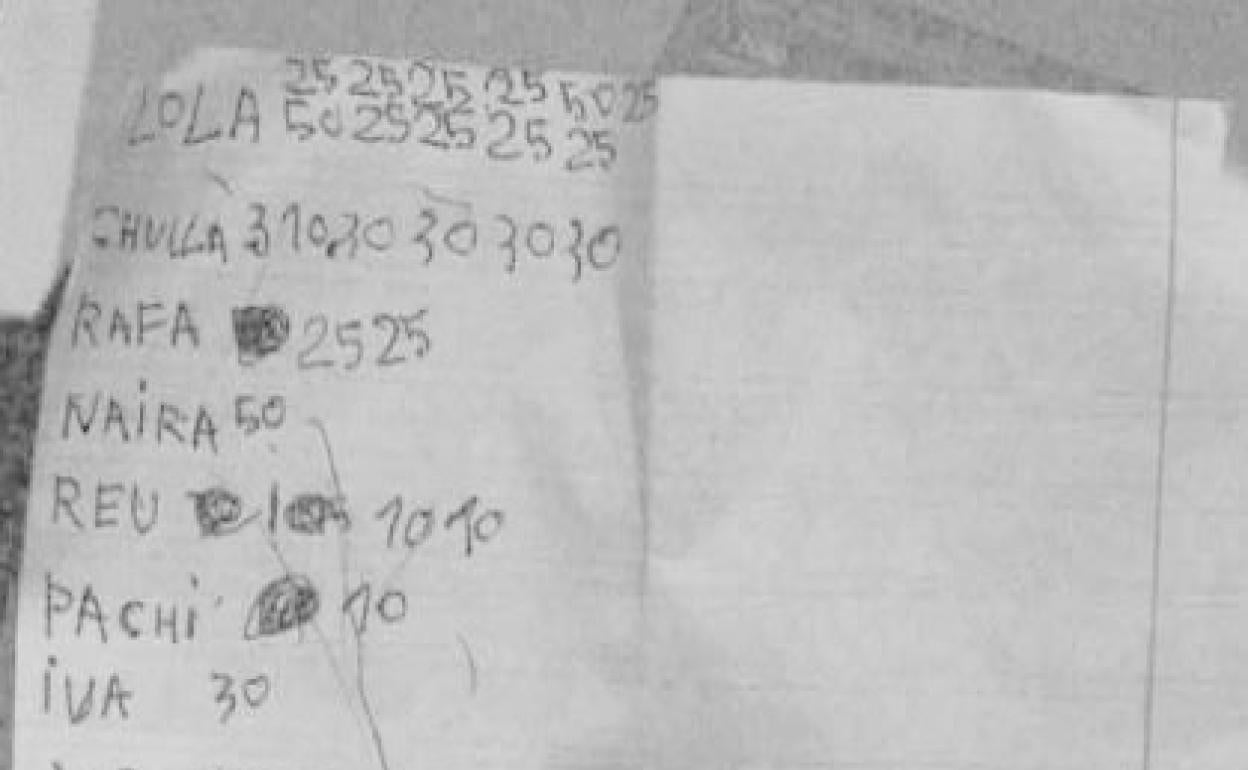 25 25 25 25 50 25
LOLA 50 25 25 25 25
CHULLA 3 10 30 30 30 30
RAFA 25 25
NAiRA 50
REU 10 10
PACHi 10
iVA 30